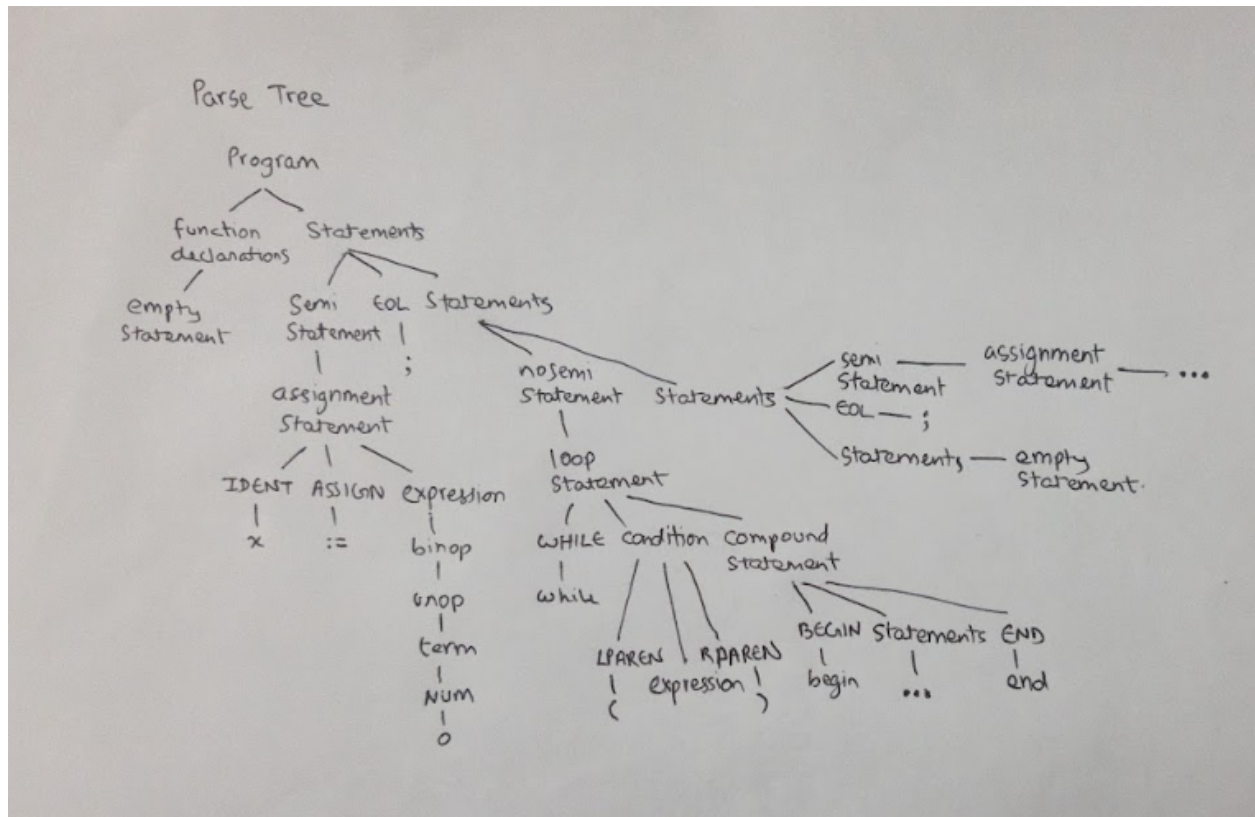 Parse Tree
Program
function Statements
declarations
empty Semi EOL Statements
Statement Statement ;
assignment
Statement
IDENT ASSIGN expression
x := binop
unop
term
NUM
0
nosemi Statements
Statement
loop
Statement
WHILE condition compound
Statement
while
LPAREN expression RPAREN
( )
BEGIN Statements END
begin ... end
semi assignment ...
Statement Statement
EOL ;
Statements empty
Statement.